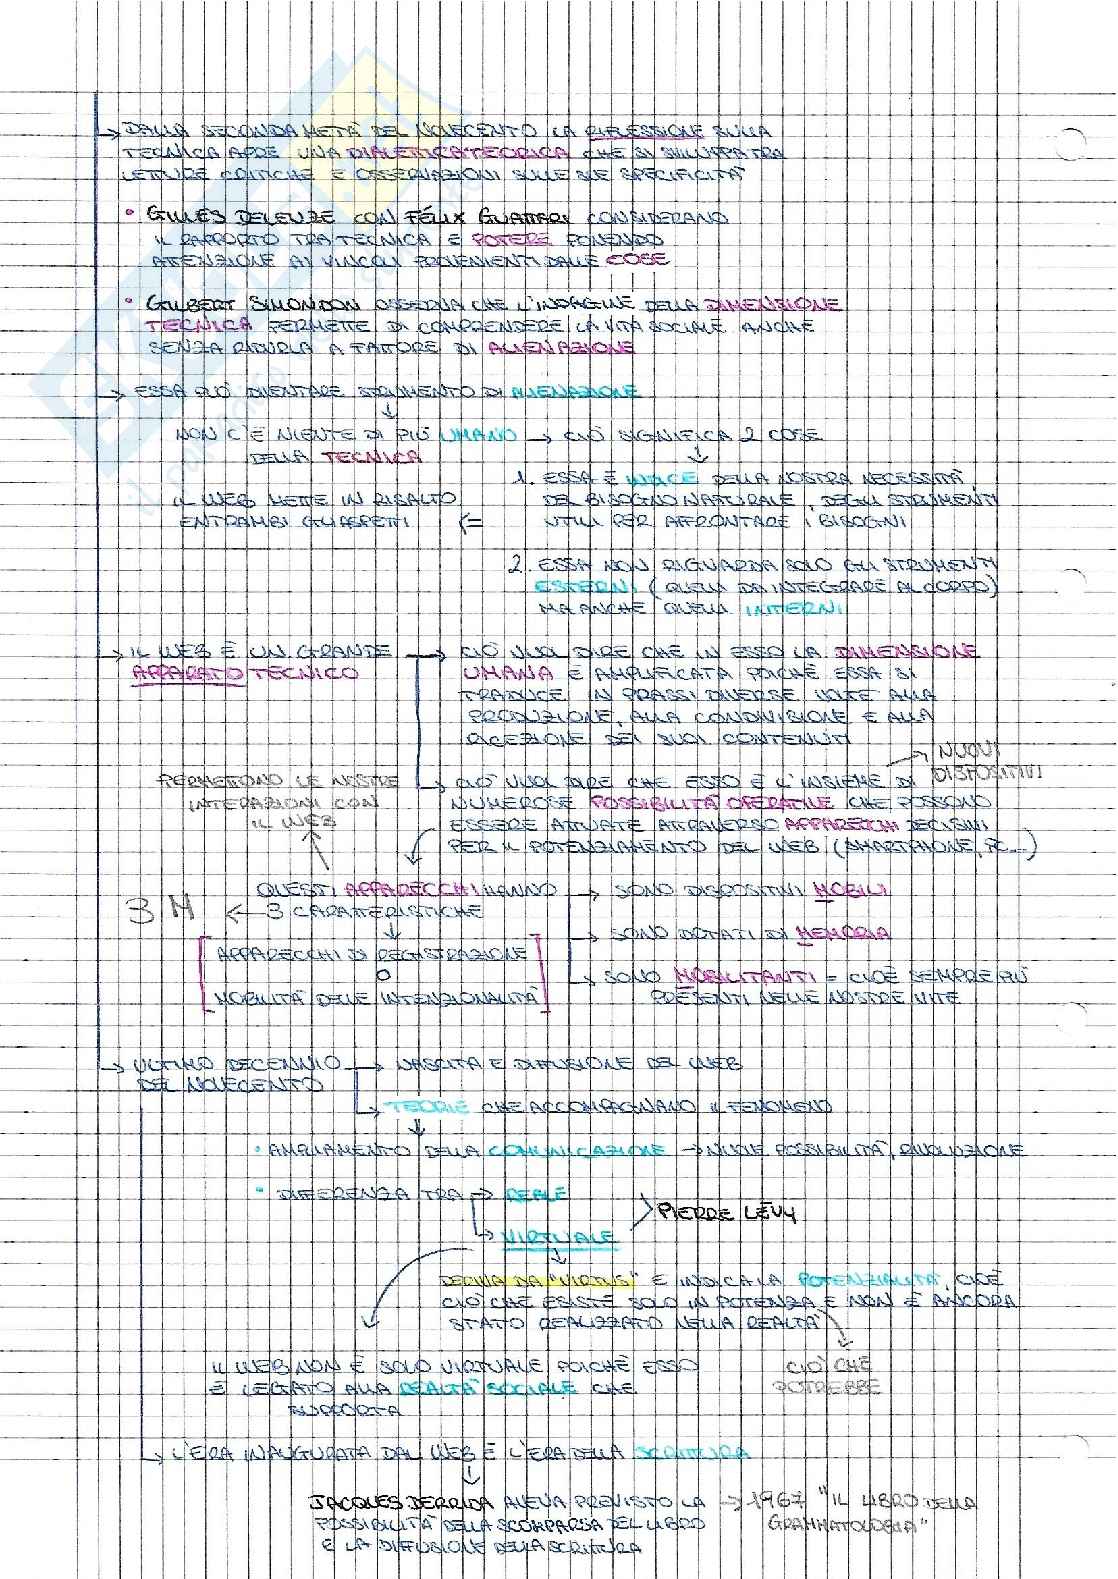 → DALLA SECONDA METÀ DEL NOVECENTO LA RIFLESSIONE SULLA
TECNICA APRE UNA DIALETTICA TEORICA CHE SI SVILUPPA TRA
LETTURE CRITICHE E OSSERVAZIONI SULLE SUE SPECIFICITÀ
• GILLES DELEUZE CON FÉLIX GUATTARI CONSIDERANO
IL RAPPORTO TRA TECNICA E POTERE PONENDO
ATTENZIONE AI VINCOLI PROVENIENTI DALLE COSE
• GILBERT SIMONDON OSSERVA CHE L'INDAGINE DELLA DIMENSIONE
TECNICA PERMETTE DI COMPRENDERE LA VITA SOCIALE ANCHE
SENZA RIDURLA A FATTORE DI ALIENAZIONE
→ ESSA PUÒ DIVENTARE STRUMENTO DI ALIENAZIONE
↓
NON C'È NIENTE DI PIÙ UMANO → CIÒ SIGNIFICA 2 COSE
DELLA TECNICA
1. ESSA È INDICE DELLA NOSTRA NECESSITÀ,
DEL BISOGNO NATURALE, DEGLI STRUMENTI
UTILI PER AFFRONTARE I BISOGNI
IL WEB METTE IN RISALTO
ENTRAMBI GLI ASPETTI <=
2. ESSA NON RIGUARDA SOLO GLI STRUMENTI
ESTERNI (QUELLI DA INTEGRARE AL CORPO)
MA ANCHE QUELLI INTERNI
→ IL WEB È UN GRANDE
APPARATO TECNICO
→ CIÒ VUOL DIRE CHE IN ESSO LA DIMENSIONE
UMANA È AMPLIFICATA POICHÈ ESSA SI
TRADUCE IN PRASSI DIVERSE VOLTE ALLA
PRODUZIONE, ALLA CONDIVISIONE E ALLA
RICEZIONE DEI SUOI CONTENUTI
→ NUOVI
DISPOSITIVI
→ CIÒ VUOL DIRE CHE ESSO È L'INSIEME DI
NUMEROSE POSSIBILITÀ OPERATIVE CHE POSSONO
ESSERE ATTUATE ATTRAVERSO APPARECCHI DECISIVI
PER IL POTENZIAMENTO DEL WEB (SMARTPHONE, PC...)
PERMETTONO LE NOSTRE
INTERAZIONI CON
IL WEB
QUESTI APPARECCHI HANNO
3 CARATTERISTICHE
3 M ←
→ SONO DISPOSITIVI MOBILI
→ SONO DOTATI DI MEMORIA
→ SONO MOBILITANTI = CIOÈ SEMPRE PIÙ
PRESENTI NELLE NOSTRE VITE
[APPARECCHI DI REGISTRAZIONE
O
MOBILITÀ DELLE INTENZIONALITÀ]
→ ULTIMO DECENNIO
DEL NOVECENTO
→ NASCITA E DIFFUSIONE DEL WEB
→ TEORIE CHE ACCOMPAGNANO IL FENOMENO
↓
• AMPLIAMENTO DELLA COMUNICAZIONE → NUOVE POSSIBILITÀ, RIVOLUZIONE
• DIFFERENZA TRA → REALE
→ VIRTUALE
> PIERRE LÉVY
↓
DERIVA DA "VIRTUS" E INDICA LA POTENZIALITÀ, CIOÈ
CIÒ CHE ESISTE SOLO IN POTENZA E NON È ANCORA
STATO REALIZZATO NELLA REALTÀ
CIÒ CHE
POTREBBE
IL WEB NON È SOLO VIRTUALE POICHÈ ESSO
È LEGATO ALLA REALTÀ SOCIALE CHE
SUPPORTA
→ L'ERA INAUGURATA DAL WEB È L'ERA DELLA SCRITTURA
↓
JACQUES DERRIDA AVEVA PREVISTO LA
POSSIBILITÀ DELLA SCOMPARSA DEL LIBRO
E LA DIFFUSIONE DELLA SCRITTURA
→ 1967 "IL LIBRO DELLA
GRAMMATOLOGIA"